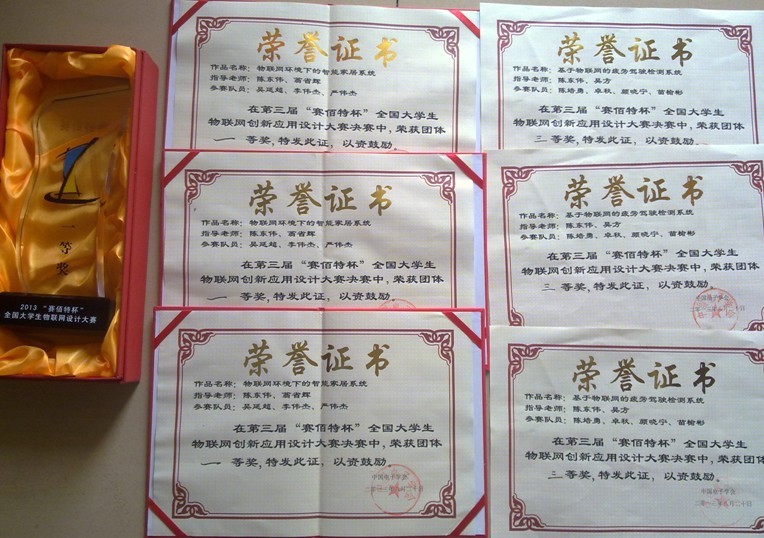 一等奖
2013 “赛佰特杯”
全国大学生物联网设计大赛
荣誉证书
作品名称：物联网环境下的智能家居系统
指导老师：陈东伟、翥省辉
参赛队员：吴廷超、李伟杰、严伟杰
在第三届“赛佰特杯”全国大学生
物联网创新应用设计大赛决赛中，荣获团体
一 等奖，特发此证，以资鼓励。
荣誉证书
作品名称：基于物联网的疲劳驾驶检测系统
指导老师：陈东伟、吴方
参赛队员：陈培勇、卓秋、顾晓宁、苗榆彬
在第三届“赛佰特杯”全国大学生
物联网创新应用设计大赛决赛中，荣获团体
三 等奖，特发此证，以资鼓励。
荣誉证书
作品名称：物联网环境下的智能家居系统
指导老师：陈东伟、翥省辉
参赛队员：吴廷超、李伟杰、严伟杰
在第三届“赛佰特杯”全国大学生
物联网创新应用设计大赛决赛中，荣获团体
一 等奖，特发此证，以资鼓励。
荣誉证书
作品名称：基于物联网的疲劳驾驶检测系统
指导老师：陈东伟、吴方
参赛队员：陈培勇、卓秋、顾晓宁、苗榆彬
在第三届“赛佰特杯”全国大学生
物联网创新应用设计大赛决赛中，荣获团体
三 等奖，特发此证，以资鼓励。
中国电子学会
荣誉证书
作品名称：物联网环境下的智能家居系统
指导老师：陈东伟、翥省辉
参赛队员：吴廷超、李伟杰、严伟杰
在第三届“赛佰特杯”全国大学生
物联网创新应用设计大赛决赛中，荣获团体
一 等奖，特发此证，以资鼓励。
中国电子学会
荣誉证书
作品名称：基于物联网的疲劳驾驶检测系统
指导老师：陈东伟、吴方
参赛队员：陈培勇、卓秋、顾晓宁、苗榆彬
在第三届“赛佰特杯”全国大学生
物联网创新应用设计大赛决赛中，荣获团体
三 等奖，特发此证，以资鼓励。
中国电子学会